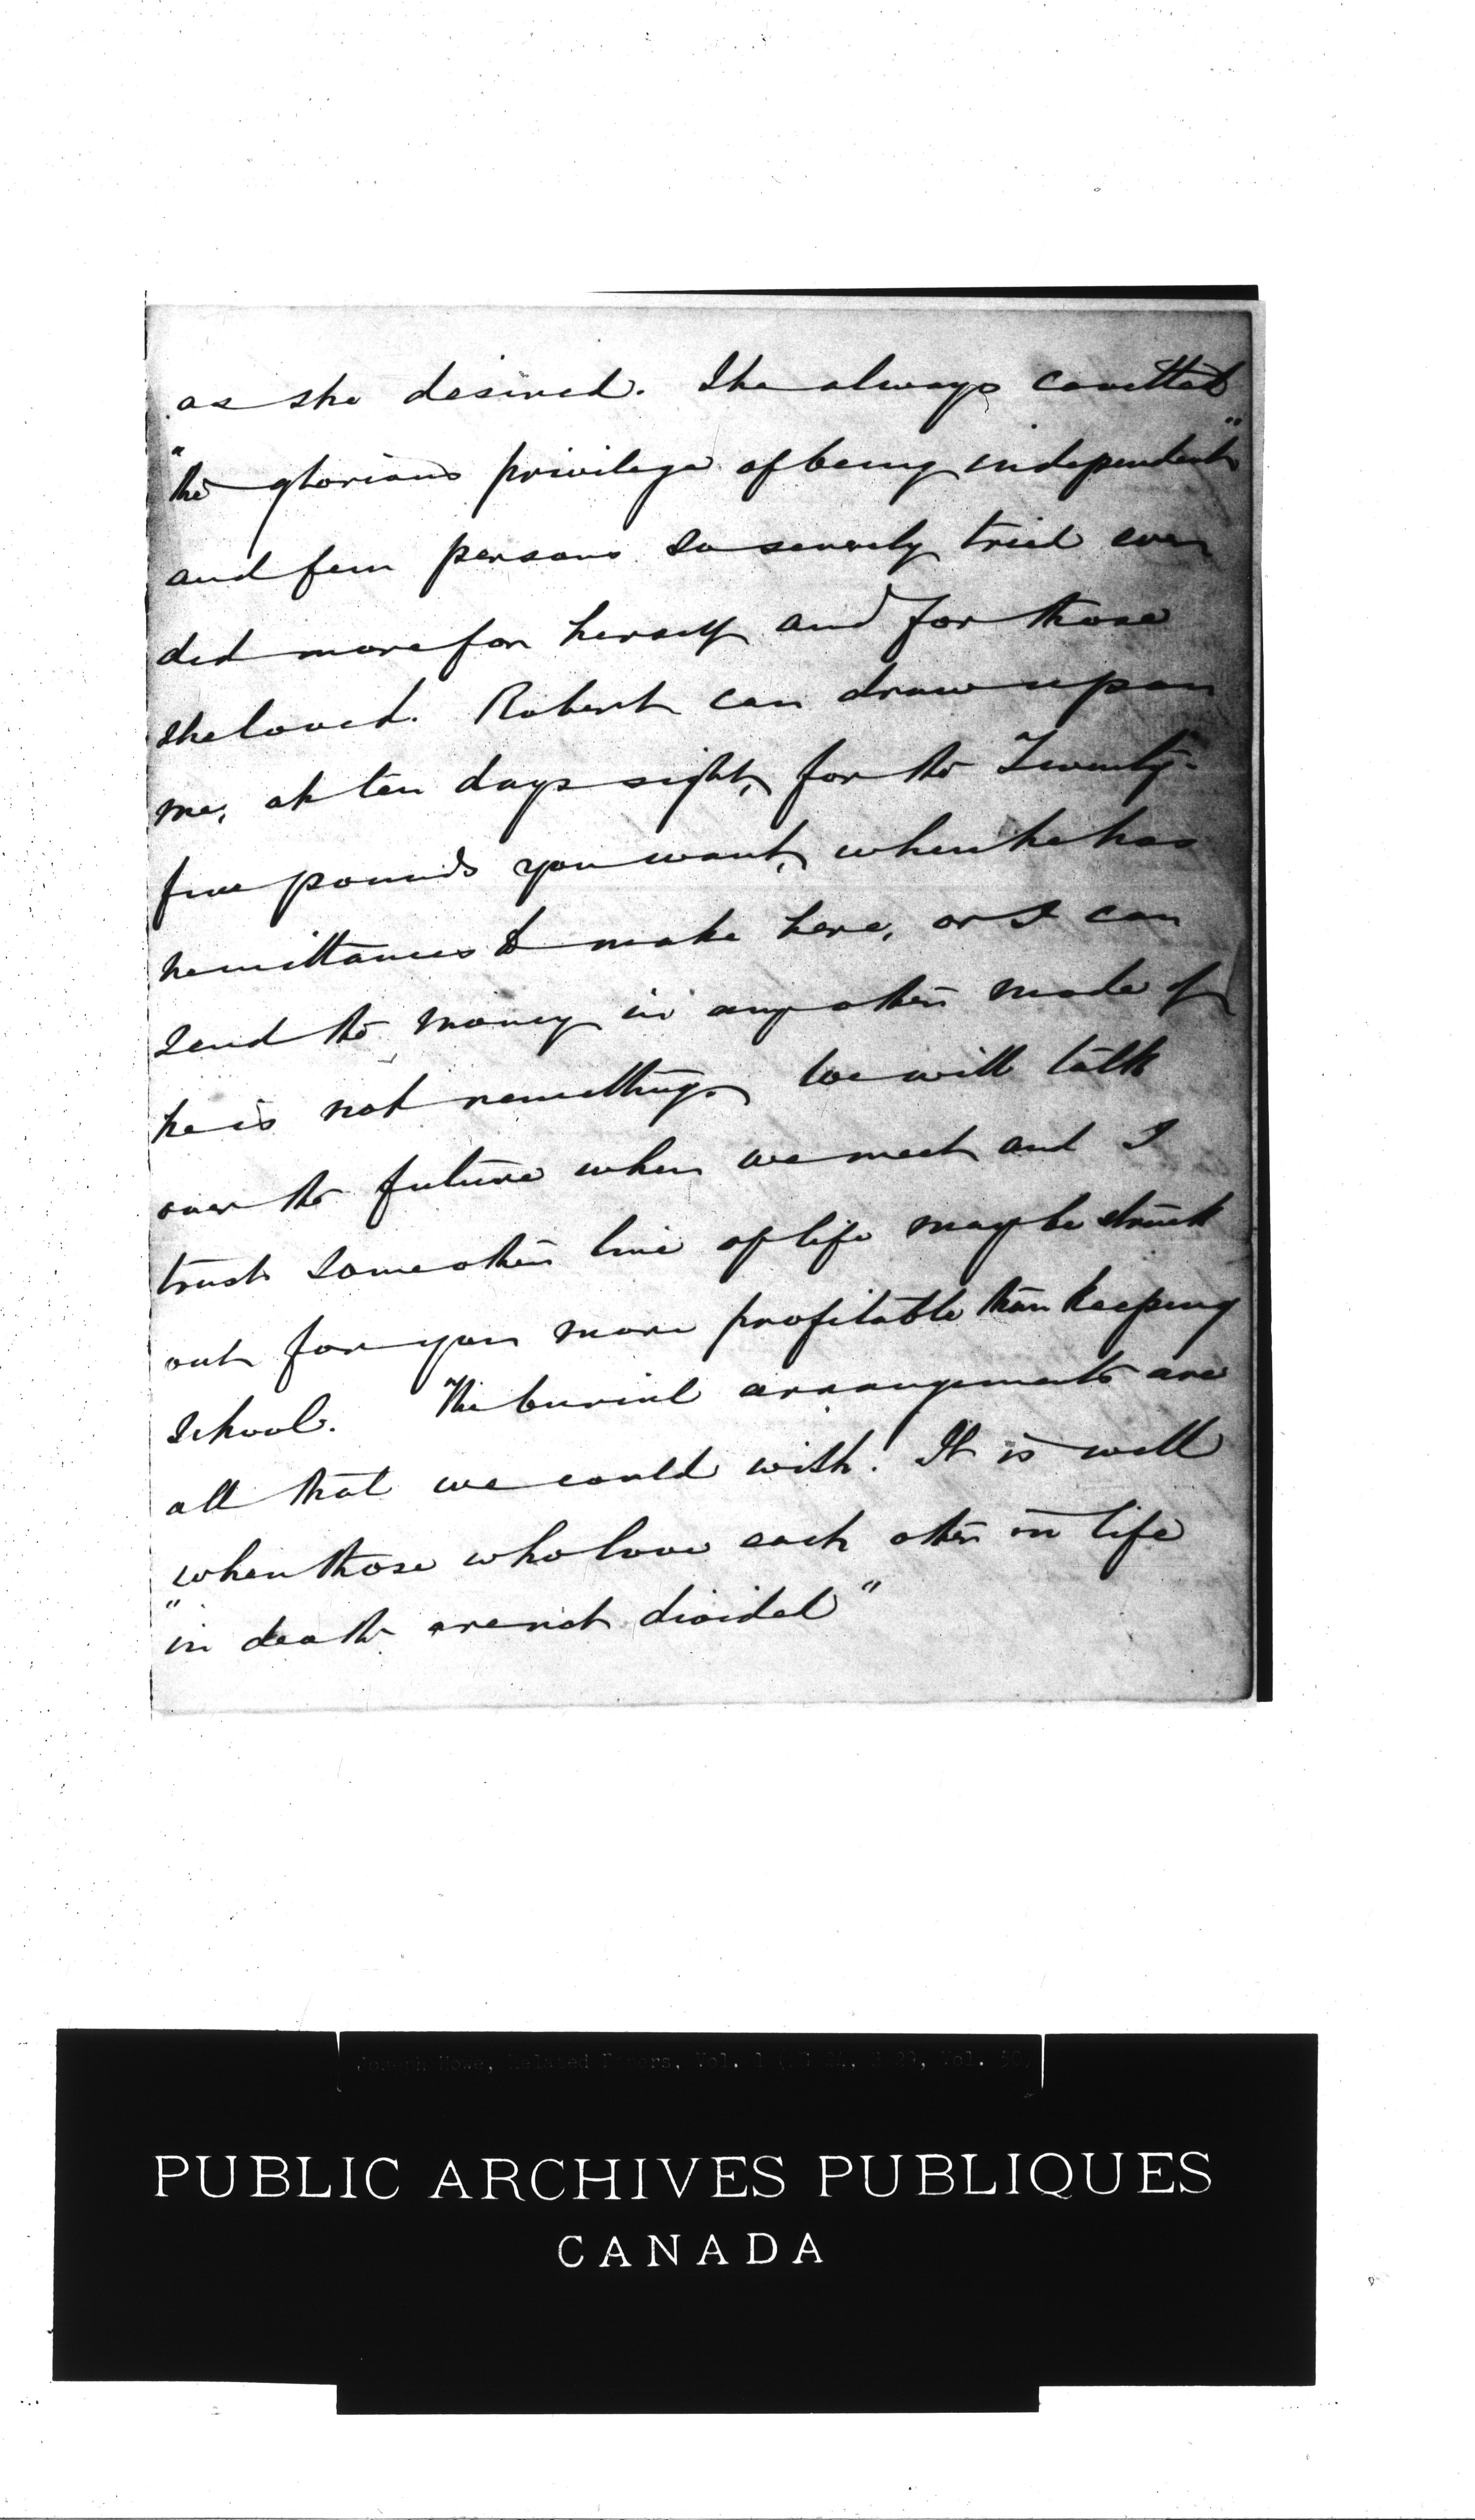 as she desired. She always covetted
"the glorious privilege of being independent"
and few persons so severely tried ever
did more for herself and for those
she loved. Robert can draw upon
me, at ten days sight, for the Twenty-
five pounds you want, when he has
remittances to make here, or I can
send the money in any other mode if
he is not remitting. We will talk
over the future when we meet and I
trust some other line of life may be struck
out for you more profitable than keeping
school. The burial arrangements are
all that we could wish. It is well
when those who love each other in life
"in death are not divided"
Joseph Howe, Related Papers, Vol. 1 (MG 24, B 29, Vol. 50)
PUBLIC ARCHIVES PUBLIQUES
CANADA